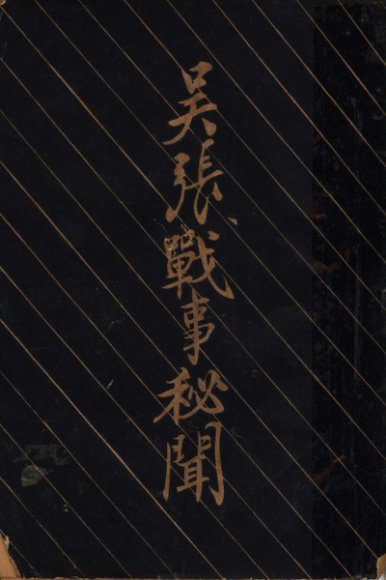 吴張戰事秘聞